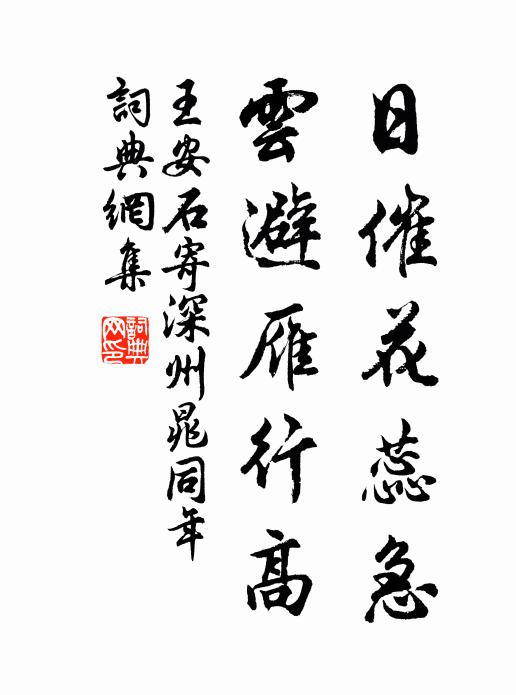 日催花蕊急
雲避雁行高
王安石寄深州晁同年
詞典網集
詞典網印